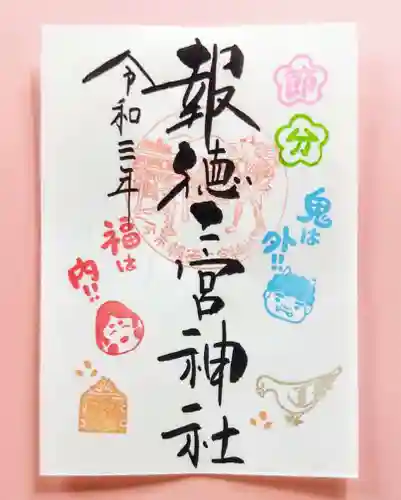 節
分
鬼は
外!!
報徳二宮神社
令和三年
福は
内!!